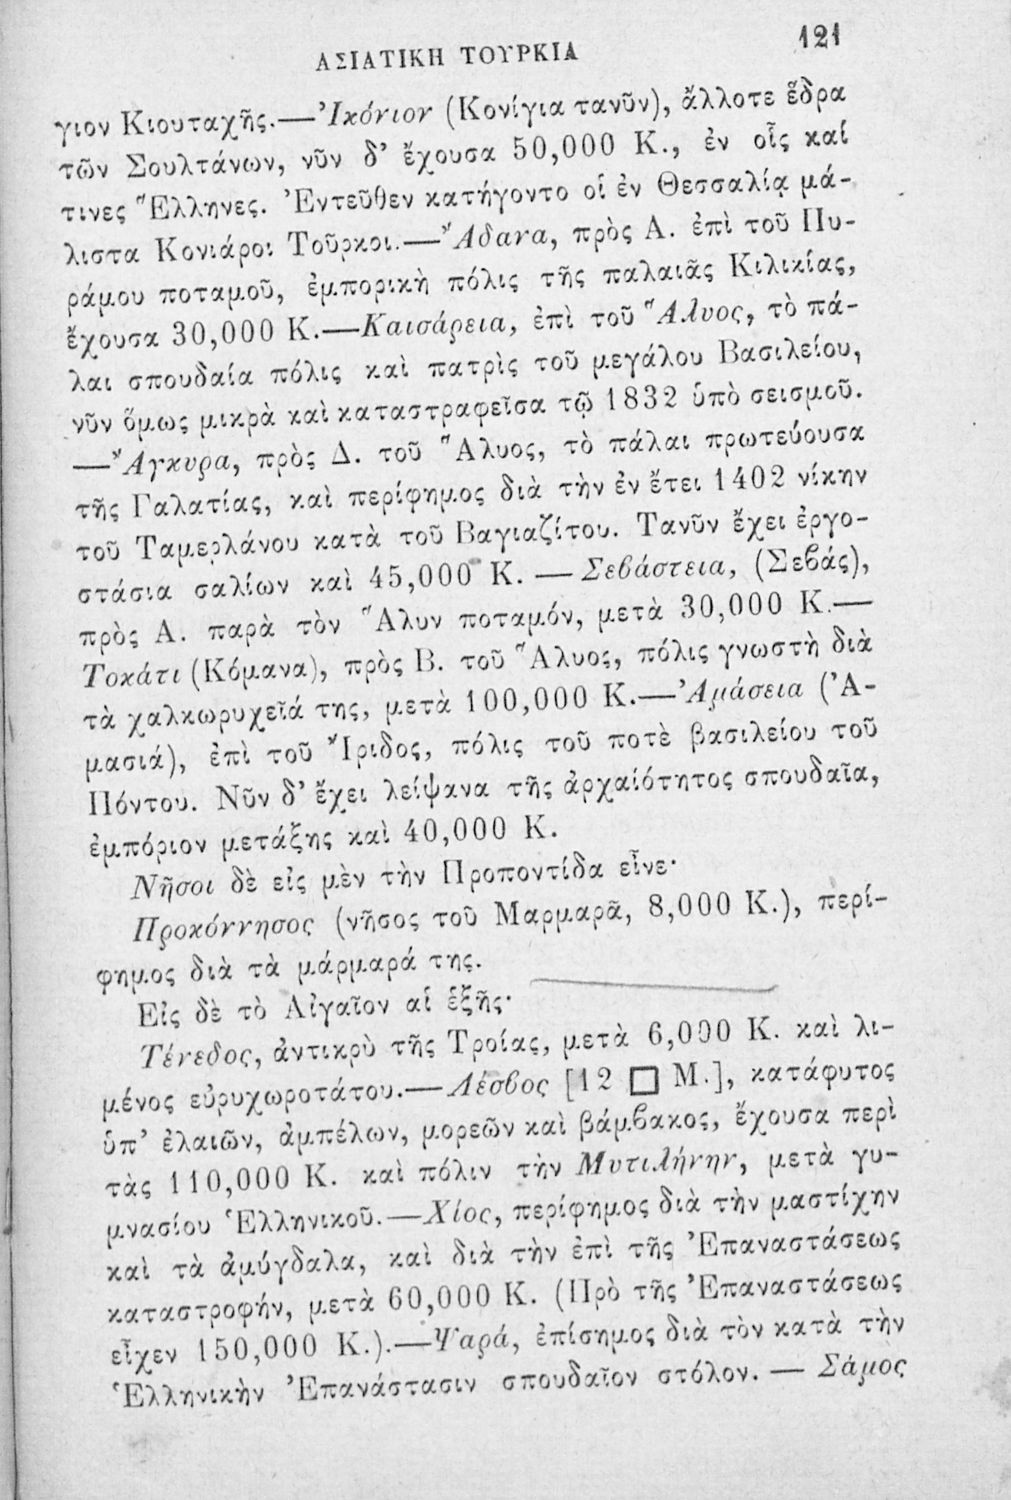 ΑΣΙΑΤΙΚΗ ΤΟΥΡΚΙΑ 121
γιον Κιουταχῆς.—Ἰκόνιον (Κονίγια τανῦν), ἄλλοτε ἕδρα
τῶν Σουλτάνων, νῦν δ’ ἔχουσα 50,000 Κ., ἐν οἷς καί
τινες Ἕλληνες. Ἐντεῦθεν κατήγοντο οἱ ἐν Θεσσαλίᾳ μά-
λιστα Κονιάροι Τοῦρκοι.—Ἄδανα, πρὸς Α. ἐπὶ τοῦ Πυ-
ράμου ποταμοῦ, ἐμπορικὴ πόλις τῆς παλαιᾶς Κιλικίας,
ἔχουσα 30,000 Κ.—Καισάρεια, ἐπὶ τοῦ Ἅλυος, τὸ πά-
λαι σπουδαία πόλις καὶ πατρὶς τοῦ μεγάλου Βασιλείου,
νῦν ὅμως μικρὰ καὶ καταστραφεῖσα τῷ 1832 ὑπὸ σεισμοῦ.
—Ἄγκυρα, πρὸς Δ. τοῦ Ἅλυος, τὸ πάλαι πρωτεύουσα
τῆς Γαλατίας, καὶ περίφημος διὰ τὴν ἐν ἔτει 1402 νίκην
τοῦ Ταμερλάνου κατὰ τοῦ Βαγιαζίτου. Τανῦν ἔχει ἐργο-
στάσια σαλίων καὶ 45,000 Κ. — Σεβάστεια, (Σεβάς),
πρὸς Α. παρὰ τὸν Ἅλυν ποταμόν, μετὰ 30,000 Κ.—
Τοκάτι (Κόμανα), πρὸς Β. τοῦ Ἅλυος, πόλις γνωστὴ διὰ
τὰ χαλκωρυχεῖά της, μετὰ 100,000 Κ.—Ἀμάσεια (Ἀ-
μασιά), ἐπὶ τοῦ Ἴριδος, πόλις τοῦ ποτὲ βασιλείου τοῦ
Πόντου. Νῦν δ’ ἔχει λείψανα τῆς ἀρχαιότητος σπουδαῖα,
ἐμπόριον μετάξης καὶ 40,000 Κ.
Νῆσοι δὲ εἰς μὲν τὴν Προποντίδα εἶνε·
Προκόννησος (νῆσος τοῦ Μαρμαρᾶ, 8,000 Κ.), περί-
φημος διὰ τὰ μάρμαρά της.
Εἰς δὲ τὸ Αἰγαῖον αἱ ἑξῆς·
Τένεδος, ἀντικρὺ τῆς Τροίας, μετὰ 6,000 Κ. καὶ λι-
μένος εὐρυχωροτάτου.—Λέσβος [12 □ Μ.], κατάφυτος
ὑπ’ ἐλαιῶν, ἀμπέλων, μορεῶν καὶ βάμβακος, ἔχουσα περὶ
τὰς 110,000 Κ. καὶ πόλιν τὴν Μυτιλήνην, μετὰ γυ-
μνασίου Ἑλληνικοῦ.—Χίος, περίφημος διὰ τὴν μαστίχην
καὶ τὰ ἀμύγδαλα, καὶ διὰ τὴν ἐπὶ τῆς Ἐπαναστάσεως
καταστροφήν, μετὰ 60,000 Κ. (Πρὸ τῆς Ἐπαναστάσεως
εἶχεν 150,000 Κ.).—Ψαρά, ἐπίσημος διὰ τὸν κατὰ τὴν
Ἑλληνικὴν Ἐπανάστασιν σπουδαῖον στόλον. — Σάμος